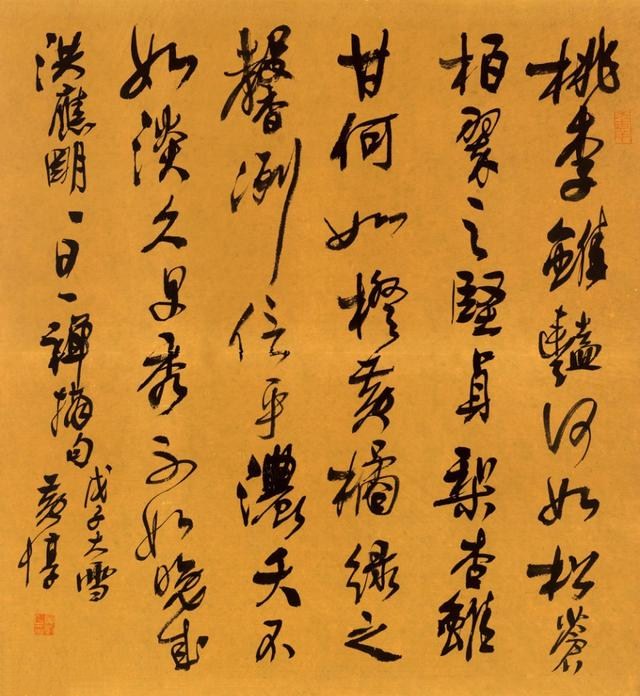 桃李雖豔何如松蒼
柏翠之堅貞梨杏雖
甘何如橙黃橘綠之
馨冽信乎濃夭不
如淡久早秀不如晚成
洪應朙一日一禪摘句
戊子大雪
黃惇